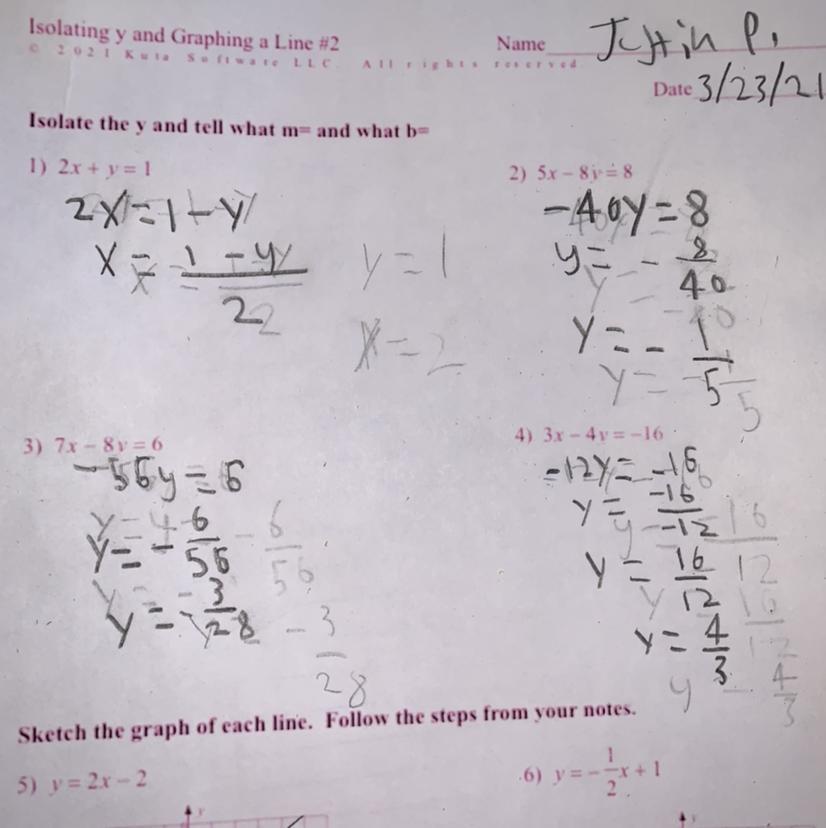 Isolating y and Graphing a Line #2
© 2021 Kuta Software LLC. All rights reserved.
Name Justin P.
Date 3/23/21
Isolate the y and tell what m= and what b=
1) 2x + y = 1
2x = 1 - y
x = 1 - y / 2
y = 1
x = 2
2) 5x - 8y = 8
-40y = 8
y = - 8/40
y = - 1/5
3) 7x - 8y = 6
-56y = 6
y = - 6/56
y = - 3/28
4) 3x - 4y = -16
-12y = -16
y = -16/-12
y = 16/12
y = 4/3
Sketch the graph of each line. Follow the steps from your notes.
5) y = 2x - 2
6) y = -1/2 x + 1
y
y